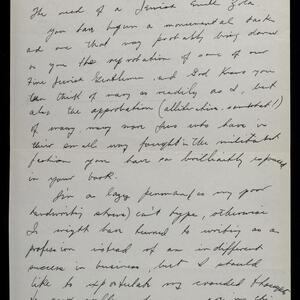 The need of a Jewish Emile Zola.
You have begun a monumental task
and one that may probably bring down
on you the reprobation of some of our
Fine Jewish Gentlemen, and God knows you
can think of many as readily as I, but
also the approbation (alliteration, somewhat!)
of many many more Jews who have in
their small way fought in the militant
fashion you have so brilliantly
in your book.
I'm a lazy penman (as my poor
handwriting shows) can't type, otherwise
I might have turned to writing as a
profession instead of an indifferent
success in business, but I should
like to expostulate my crowded thoughts